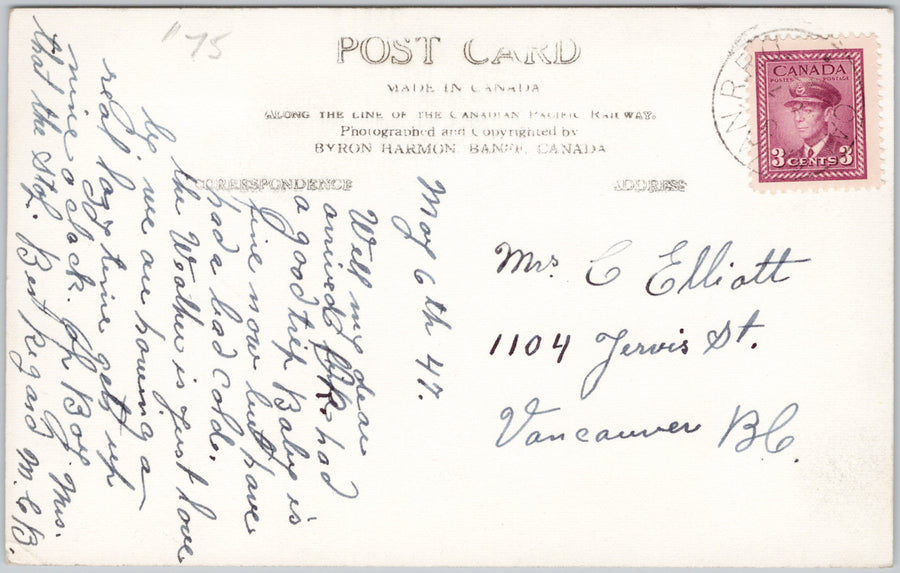 "75
POST CARD
MADE IN CANADA
ALONG THE LINE OF THE CANADIAN PACIFIC RAILWAY.
Photographed and Copyrighted by
BYRON HARMON, BANFF, CANADA
CORRESPONDENCE
ADDRESS
CANADA
POSTES POSTAGE
3 CENTS 3
May 6th 47.
Well my dear
arrived O.K. had
a good trip Baby is
fine now but have
had a bad cold.
the Weather is just love
ly, we are having a
real lazy time gets up
nine o clock. Oh Boy. Mrs.
that the stof. Best regard M.E.B.
Mrs C Elliott
1104 Jervis St.
Vancouver BC.